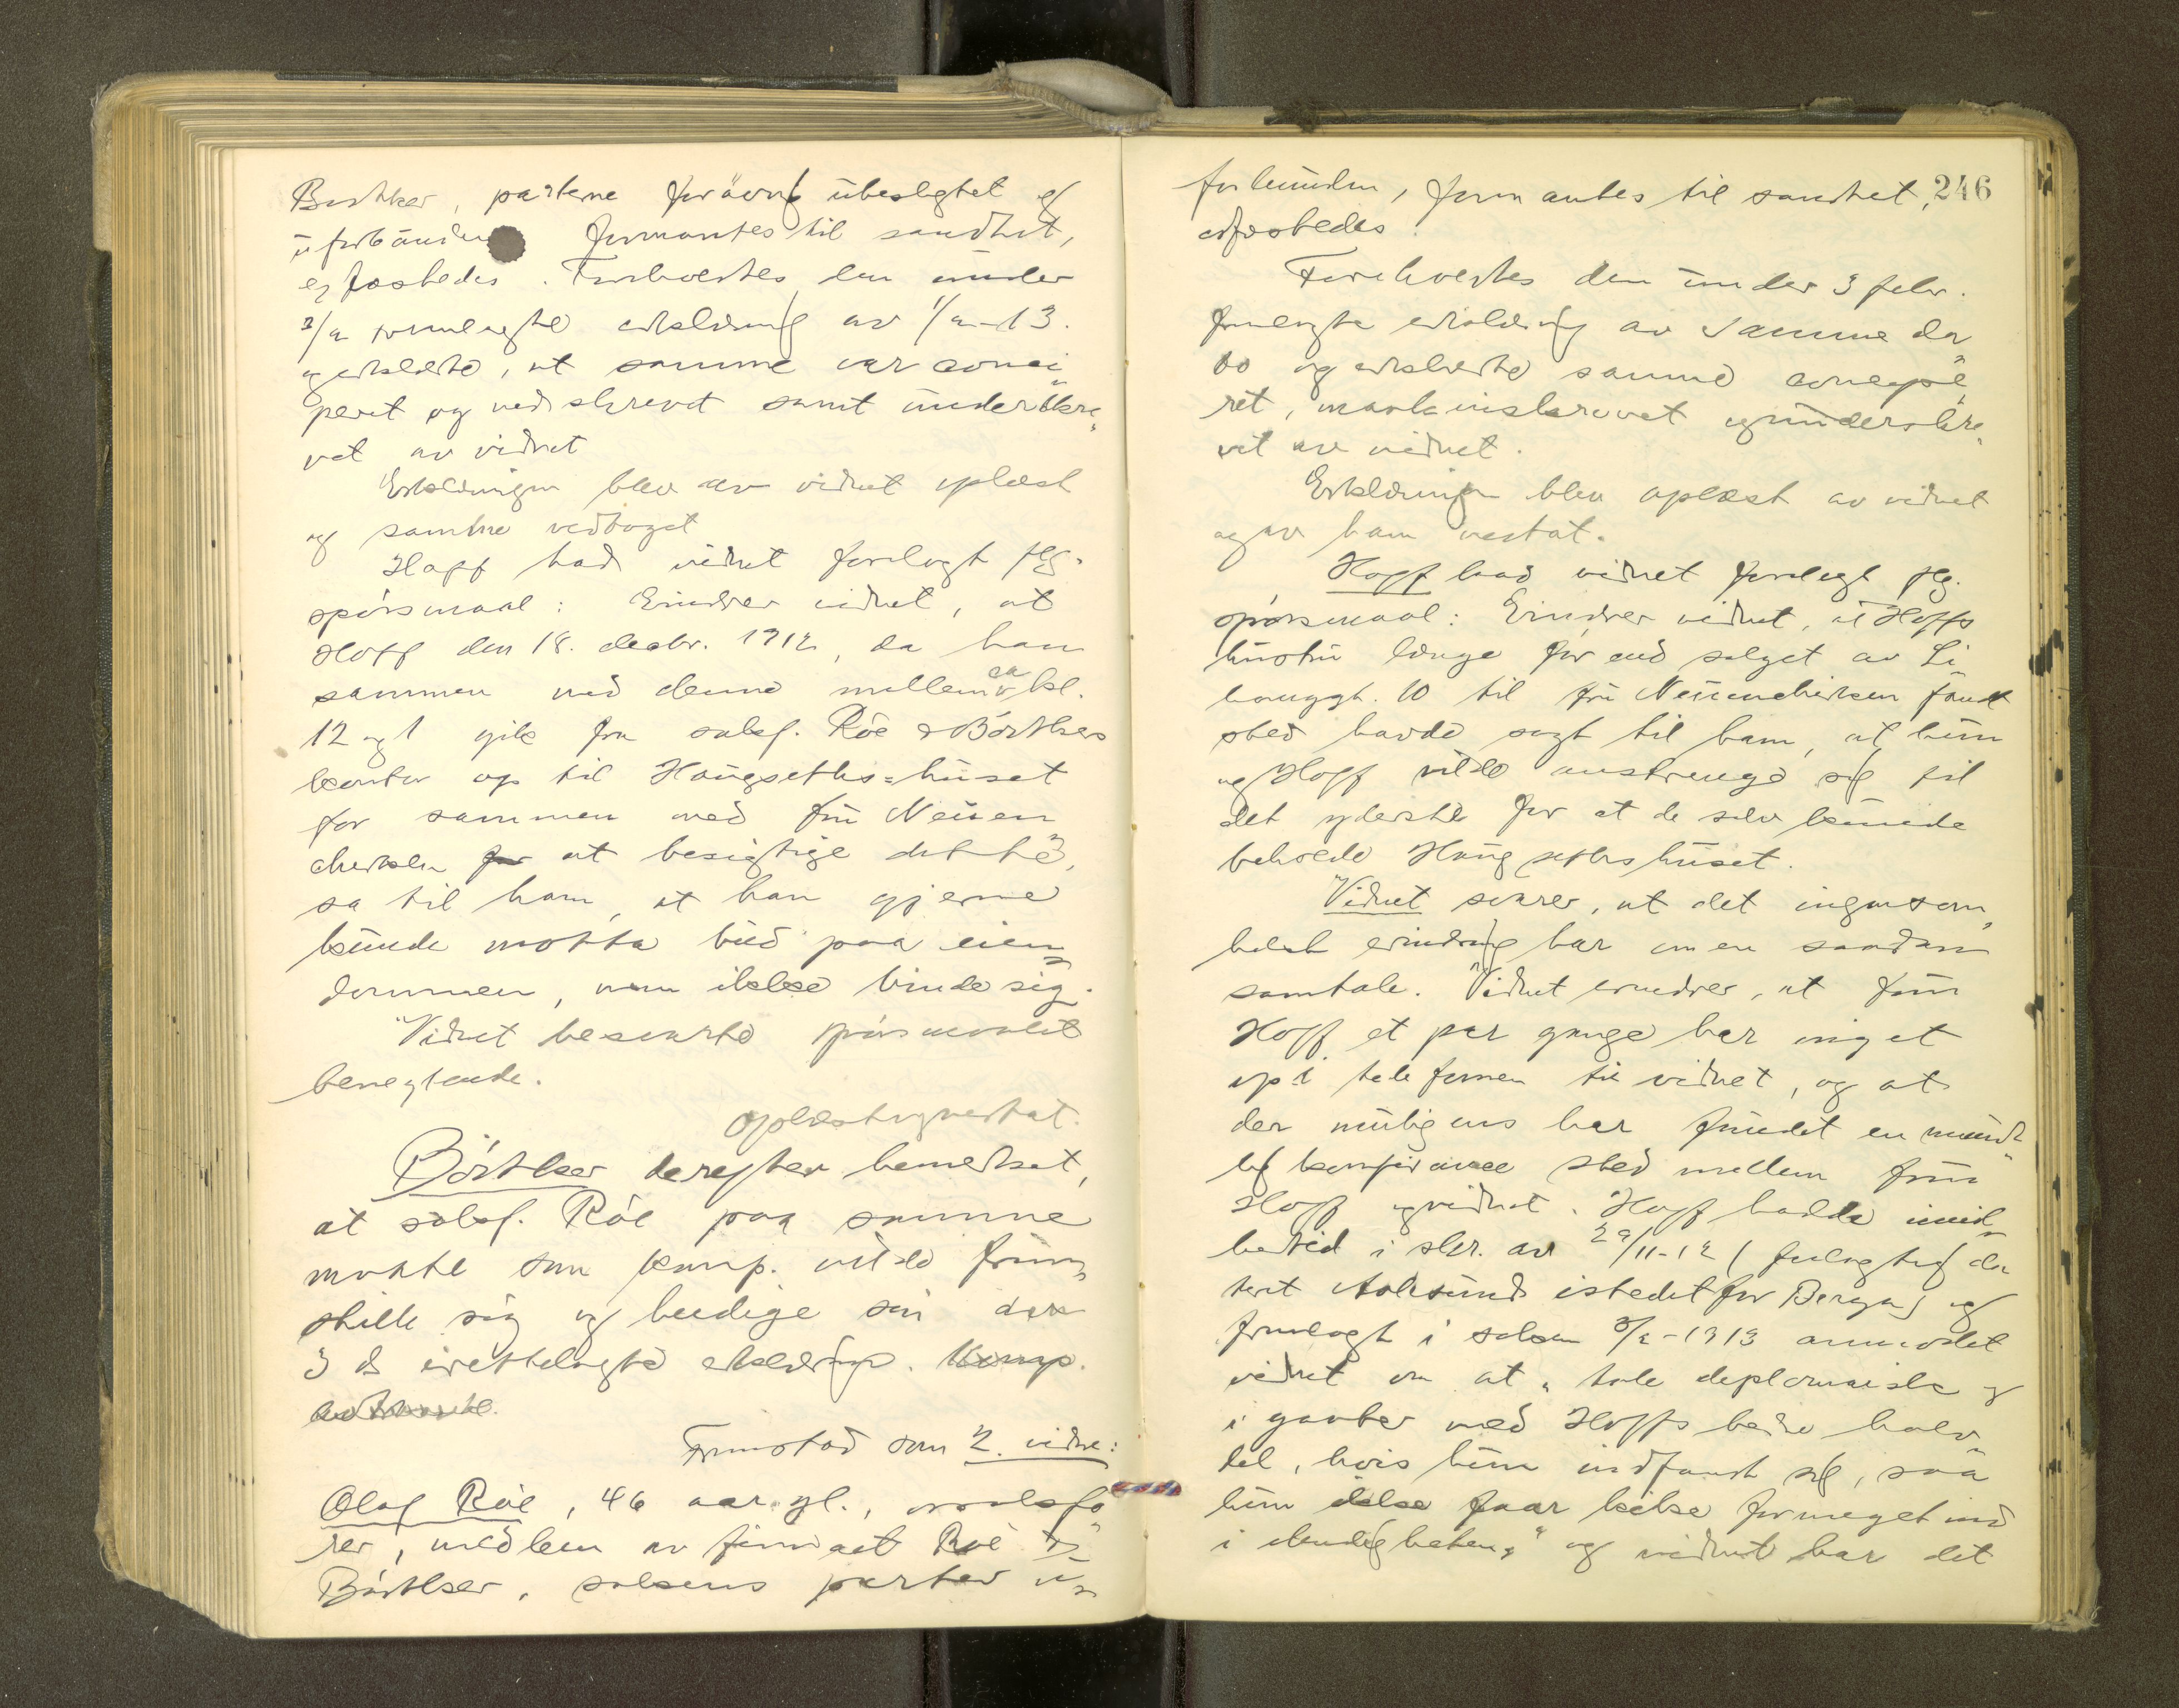 Børtker, parterne forøvrig ubeslegtet og
uforbunden formantes til sandhet,
edfæstedes. Foreholdtes den under
3/2 fremlagte erklæring av 1/2-13.
og erklærte, at samme var konci
peret og nedskrevet samt underskre„
vet av vidnet
Erklæringen blev av vidnet oplæst
og samme vedtaget
Hoff bad vidnet forelagt flg.
spørsmaal: Erindrer vidnet, at
Hoff den 18. decbr. 1912, da han
sammen med denne mellem ca kl.
12 og 1 gik fra saksf. Röe & Børtkers
kontor op til Haugseths=huset
for sammen med fru Neuen
chirken for at besigtige dette,
sa til ham, at han gjerne
kunde motta bud paa eien
dommen, men ikke binde sig.
Vidnet besvarte spørsmaalet
benegtende.
Oplæst og vedtat.
Børtker derefter bemerket,
at saksf. Röe paa samme
maate som komp. vilde frem„
stille sig og beedige sin den
3 ds irettelagte erklæring. Komp.
Fremstod som 2. vidne:
Olaf Röe, 46 aar gl., saksfø
rer, medlem av firmaet Röe &
Børtker, saksens parter u„
246
forbunden, formantes til sandhet,
edfæstedes.
Foreholdtes den under 3 febr.
fremlagte erklæring av samme da
to og erklærte samme concipe„
ret, maskinskrevet og underskre„
vet av vidnet.
Erklæringen blev oplæst av vidnet
og av ham vedtat.
Hoff bad vidnet forelagt flg.
spørsmaal: Erindrer vidnet, at Hoffs
hustru længe før end salget av Li
hauggt. 10 til fru Neuenchirken fandt
sted havde sagt til ham, at hun
og Hoff vilde anstrenge sig til
det yderste for at de selv kunde
beholde Haugsethshuset.
Vidnet svarer, at det ingensom„
helst erindring har om en saadan
samtale. Vidnet erindrer, at fru
Hoff et par gange har ringet
op i telefonen til vidnet, og at
der muligens har fundet en mundt„
lig konferance sted mellem fru
Hoff og vidnet. Hoff hadde imid„
lertid i skr. av 29/11-12 (feilagtig da
tert Aalesund istedetfor Bergen) og
fremlagt i saken 3/2-1913 anmodet
vidnet om at „tale deplomaisk og
i ganter med Hoffs bedre halv„
del, hvis hun indfandt sig, saa
hun ikke faar kikke formeget ind
i elendigheten," og vidnet har det